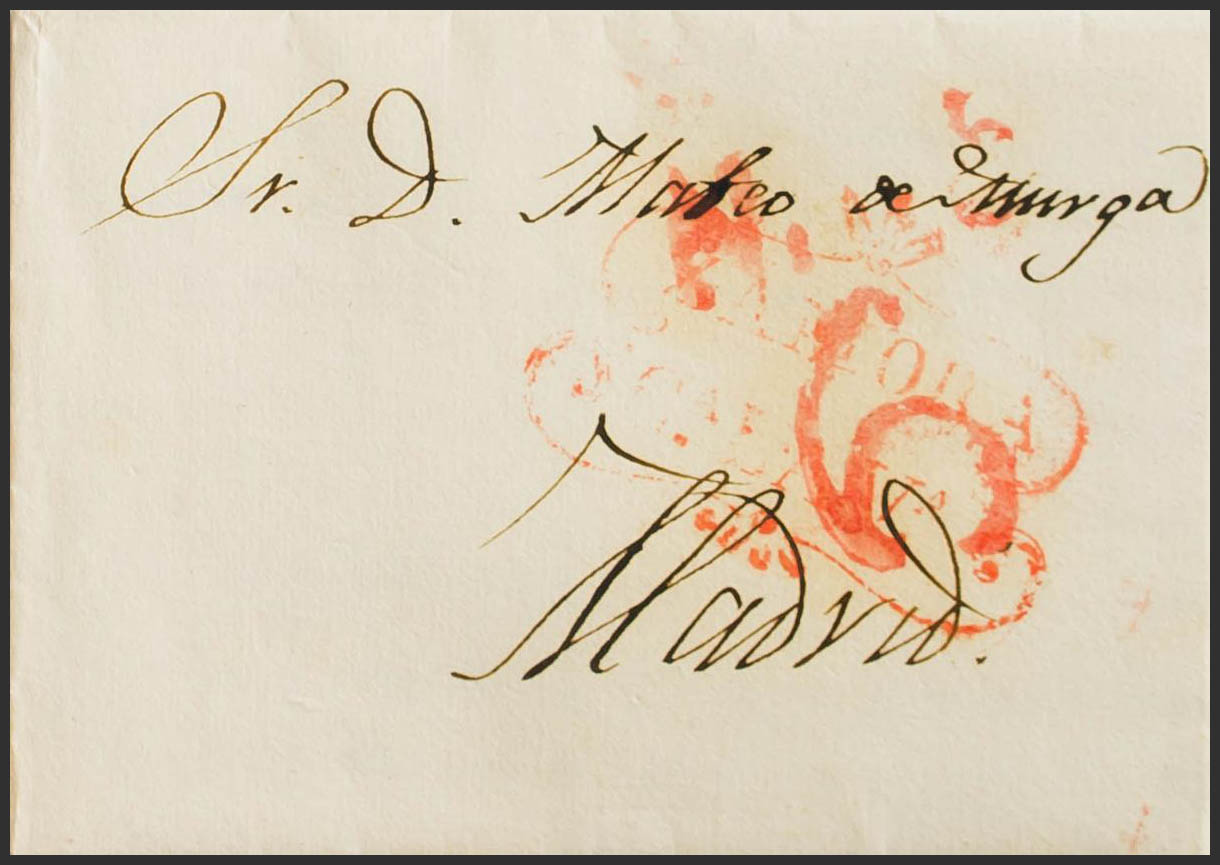 Sr. D. Mateo de Murga
6
Madrid.